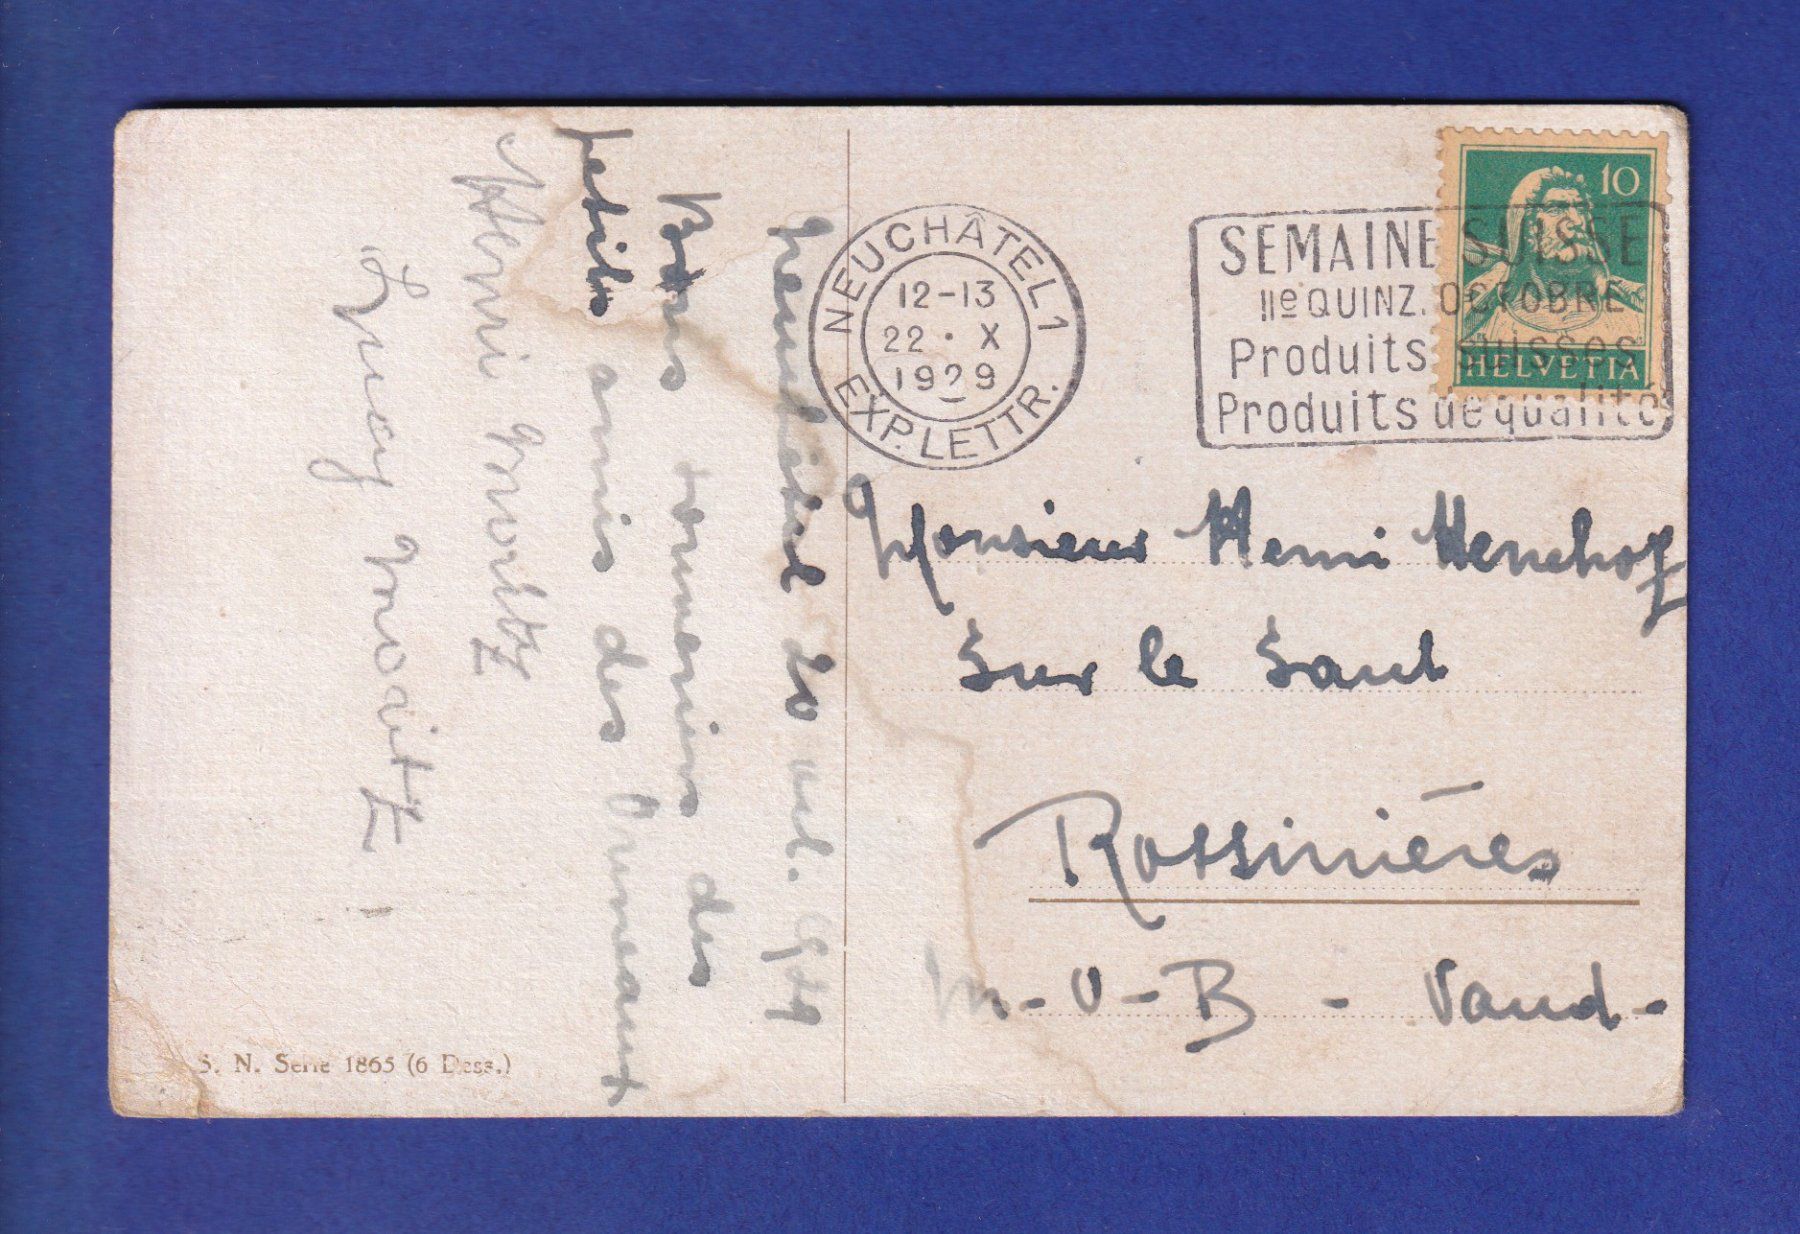 Neuchâtel 20 oct. 1929
Bons souvenirs des
petits amis des Pruneaux
Henri Moritz
Lucy Moritz
S. N. Serie 1865 (6 Dess.)
NEUCHÂTEL 1
12-13
22 · X
1929
EXP. LETTR.
SEMAINE SUISSE
IIe QUINZ. OCTOBRE
Produits suisses
Produits de qualité
10
HELVETIA
Monsieur Henri Henchoz
Sur le Saut
Rossinières
M-O-B - Vaud-